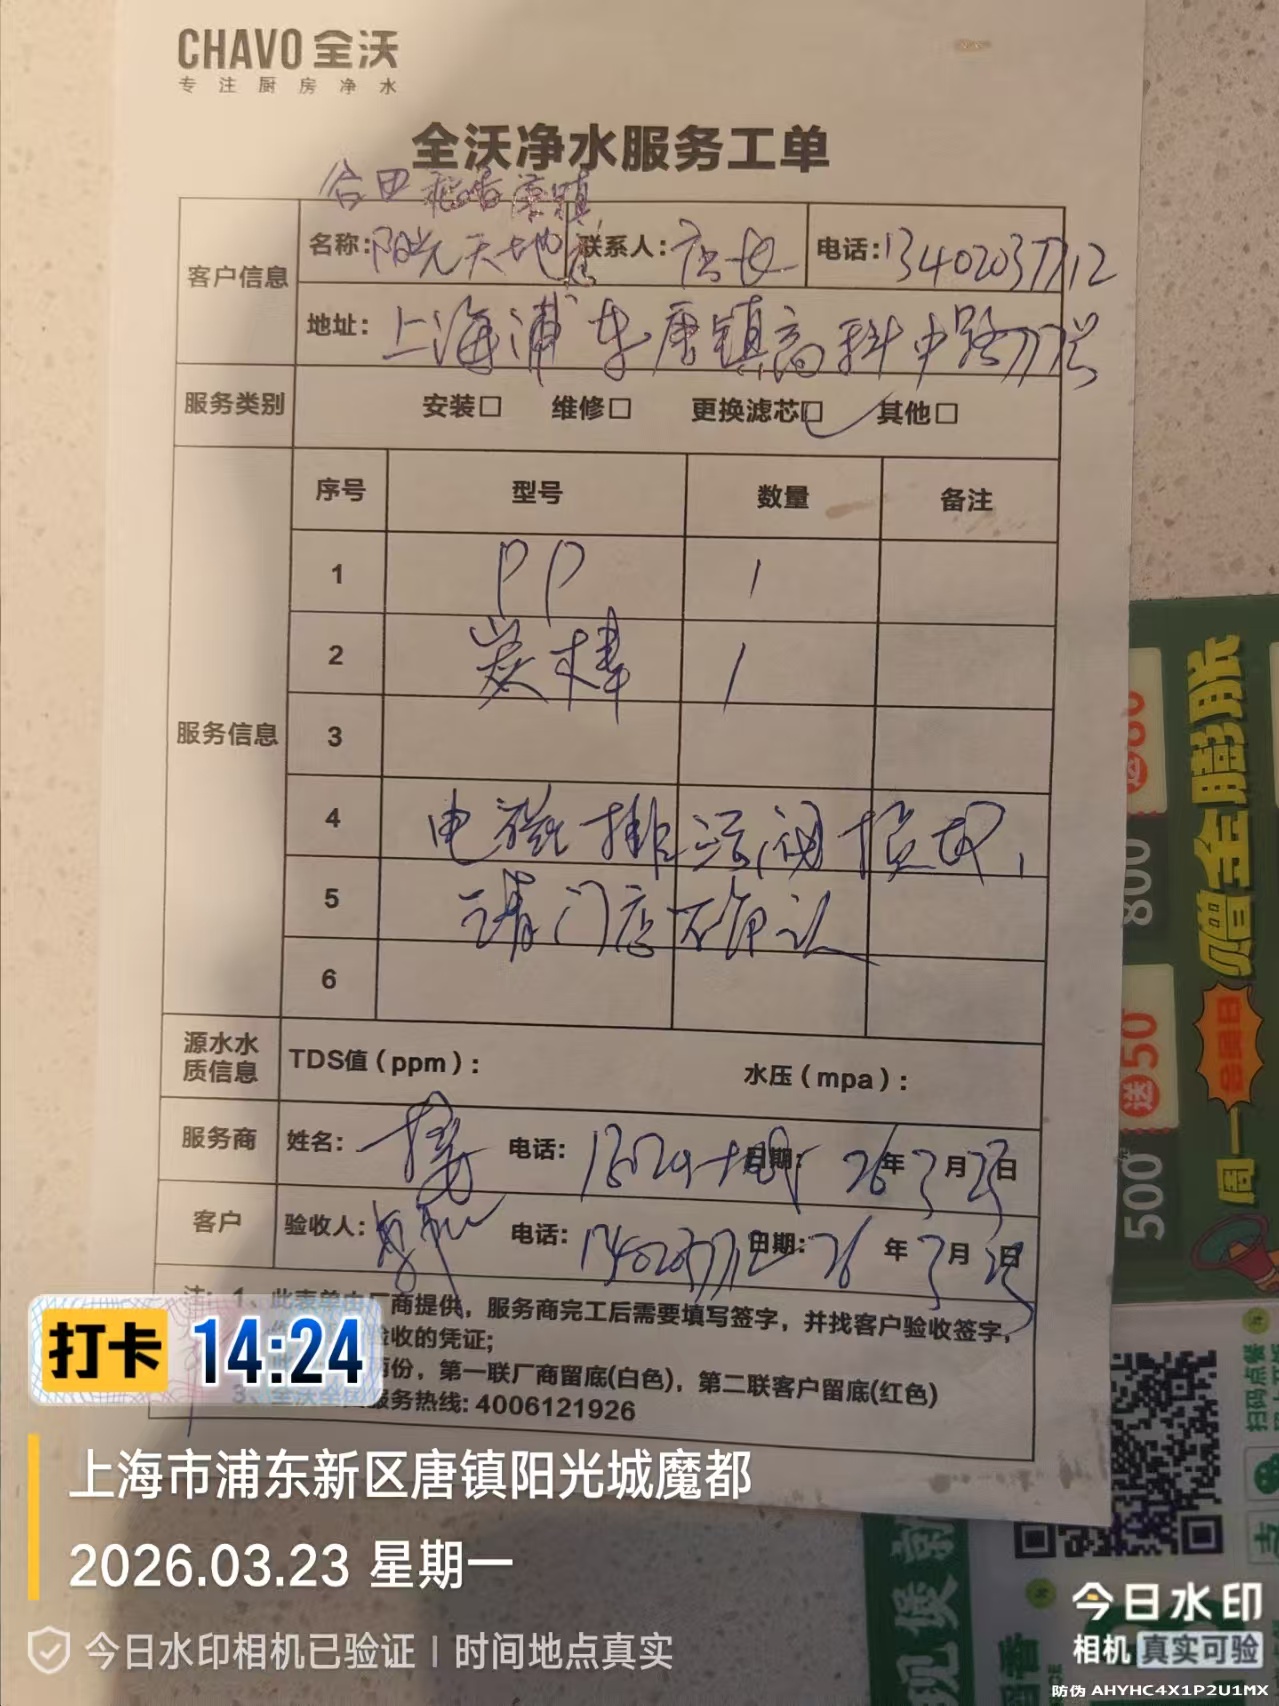 CHAVO 全沃
专注厨房净水
全沃净水服务工单
谷田稻香唐镇
客户信息 名称:阳光天地店 联系人:店长 电话:13402037712
地址:上海浦东唐镇高科中路777号
服务类别 安装□ 维修□ 更换滤芯□ 其他□
服务信息 序号 型号 数量 备注
1 PP 1
2 炭棒 1
3
4 电磁排污阀损坏,
5 请门店确认
6
源水水质信息 TDS值(ppm): 水压(mpa):
服务商 姓名: 电话: 日期: 26年3月23日
客户 验收人: 电话:13402037712 日期:26年3月23日
注: 1、此表单由厂商提供,服务商完工后需要填写签字,并找客户验收签字,
验收的凭证;
两份,第一联厂商留底(白色),第二联客户留底(红色)
3、全沃全国服务热线:4006121926
打卡 14:24
上海市浦东新区唐镇阳光城魔都
2026.03.23 星期一
今日水印相机已验证 时间地点真实
今日水印
相机 真实可验
防伪 AHYHC4X1P2U1MX
周一会员日
赠金膨胀
500 送50
800 送80
扫码点餐